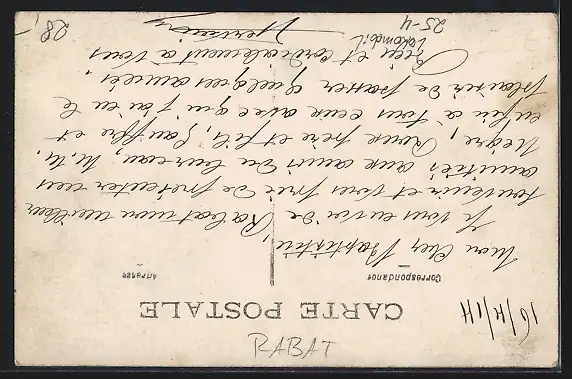 16/4/14
CARTE POSTALE
Correspondance
Adresse
Mon Cher Baptistin
Je vous envoi de Rabat mon meilleur
souvenir et vous prie de présenter mes
amitiés aux amis du bureau, M. M.
Nègre, Roux père et fils, et
enfin à tous ceux avec qui j'ai eu le
plaisir de passer quelques années.
Bien et cordialement à vous
RABAT
25-4
28